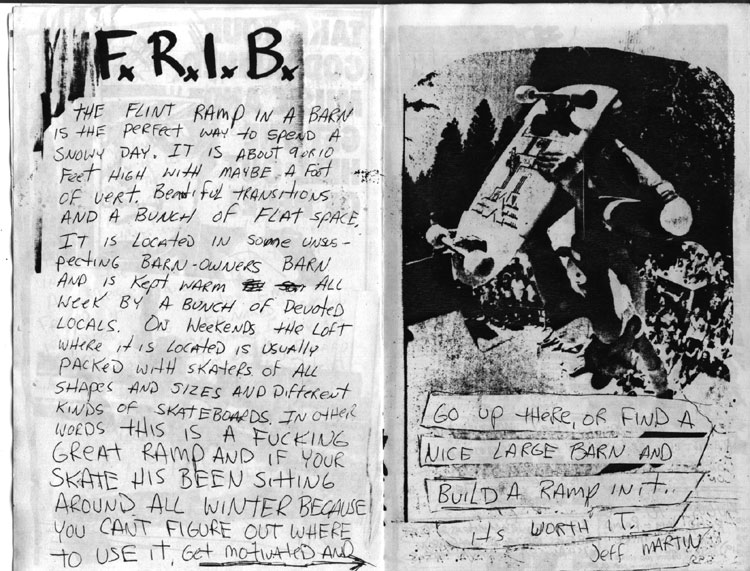 F.R.I.B.
THE FLINT RAMP IN A BARN
IS THE PERFECT WAY TO SPEND A
SNOWY DAY. IT IS ABOUT 9 OR 10
FEET HIGH WITH MAYBE A FOOT
OF VERT. BEAUTIFUL TRANSITIONS
AND A BUNCH OF FLAT SPACE.
IT IS LOCATED IN SOME UNSUS-
PECTING BARN-OWNERS BARN
AND IS KEPT WARM ALL
WEEK BY A BUNCH OF DEVOTED
LOCALS. ON WEEKENDS THE LOFT
WHERE IT IS LOCATED IS USUALLY
PACKED WITH SKATERS OF ALL
SHAPES AND SIZES AND DIFFERENT
KINDS OF SKATEBOARDS. IN OTHER
WORDS THIS IS A FUCKING
GREAT RAMP AND IF YOUR
SKATE HIS BEEN SITTING
AROUND ALL WINTER BECAUSE
YOU CANT FIGURE OUT WHERE
TO USE IT, GET MOTIVATED AND
GO UP THERE, OR FIND A
NICE LARGE BARN AND
BUILD A RAMP IN IT..
ITS WORTH IT.
JEFF MARTIN